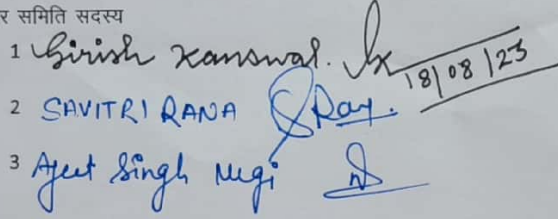 र समिति सदस्य
1 Girish Kanswal. 18/08/23
2 SAVITRI RANA SRay.
3 Ajeet Singh Negi